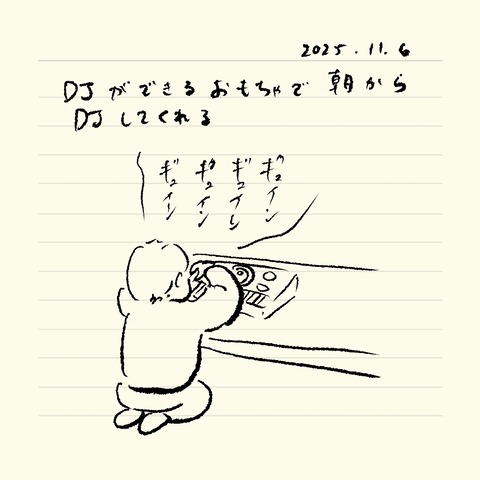 2025.11.6
DJができるおもちゃで 朝から
DJしてくれる
ギュイン
ギュイン
ギュイン
ギュイン